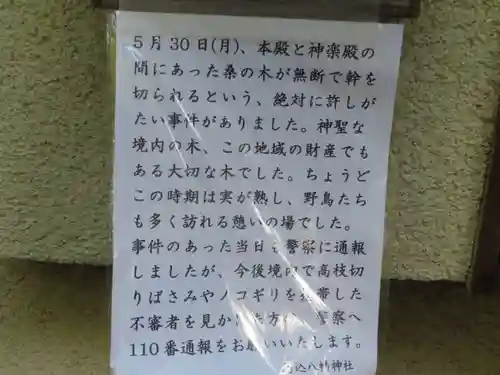 5月30日(月)、本殿と神楽殿の
間にあった桑の木が無断で幹を
切られるという、絶対に許しが
たい事件がありました。神聖な
境内の木、この地域の財産でも
ある大切な木でした。ちょうど
この時期は実が熟し、野鳥たち
も多く訪れる憩いの場でした。
事件のあった当日も警察に通報
しましたが、今後境内で高枝切
りばさみやノコギリを携帯した
不審者を見か 方 警察へ
110番通報をお願いいたします。
込八幡神社